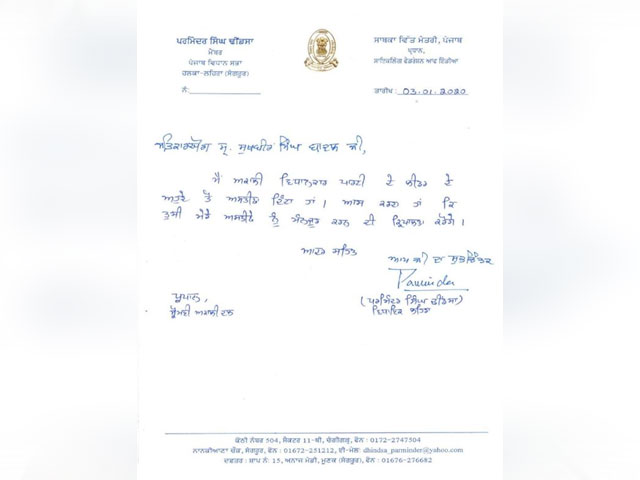 ਪਰਮਿੰਦਰ ਸਿੰਘ ਢੀਂਡਸਾ
ਮੈਂਬਰ
ਪੰਜਾਬ ਵਿਧਾਨ ਸਭਾ
ਹਲਕਾ-ਲਹਿਰਾ (ਸੰਗਰੂਰ)
ਨੰ:
ਸਾਬਕਾ ਵਿੱਤ ਮੰਤਰੀ, ਪੰਜਾਬ
ਪ੍ਰਧਾਨ,
ਸਾਇਕਲਿੰਗ ਫੈਡਰੇਸ਼ਨ ਆਫ ਇੰਡੀਆ
ਤਾਰੀਖ : 03.01.2020
ਸਤਿਕਾਰਯੋਗ ਸ੍ਰ. ਸੁਖਬੀਰ ਸਿੰਘ ਬਾਦਲ ਜੀ,
ਮੈਂ ਅਕਾਲੀ ਵਿਧਾਨਕਾਰ ਪਾਰਟੀ ਦੇ ਲੀਡਰ ਦੇ
ਅਹੁਦੇ ਤੋਂ ਅਸਤੀਫਾ ਦਿੰਦਾ ਹਾਂ। ਆਸ ਕਰਦਾ ਹਾਂ ਕਿ
ਤੁਸੀਂ ਮੇਰੇ ਅਸਤੀਫੇ ਨੂੰ ਮੰਨਜ਼ੂਰ ਕਰਨ ਦੀ ਕ੍ਰਿਪਾਲਤਾ ਕਰੋਗੇ।
ਆਦਰ ਸਹਿਤ
ਆਪ ਜੀ ਦਾ ਸ਼ੁਭਚਿੰਤਕ
Parminder
(ਪਰਮਿੰਦਰ ਸਿੰਘ ਢੀਂਡਸਾ)
ਵਿਧਾਇਕ ਲਹਿਰਾ
ਪ੍ਰਧਾਨ,
ਸ਼੍ਰੋਮਣੀ ਅਕਾਲੀ ਦਲ
ਕੋਠੀ ਨੰਬਰ 504, ਸੈਕਟਰ 11-ਬੀ, ਚੰਡੀਗੜ੍ਹ, ਫੋਨ : 0172-2747504
ਨਾਨਕਿਆਣਾ ਚੌਂਕ, ਸੰਗਰੂਰ, ਫੋਨ : 01672-251212, ਈ-ਮੇਲ: dhindsa_parminder@yahoo.com
ਦਫਤਰ : ਸ਼ਾਪ ਨੰ: 15, ਅਨਾਜ ਮੰਡੀ, ਮੂਨਕ (ਸੰਗਰੂਰ), ਫੋਨ : 01676-276682